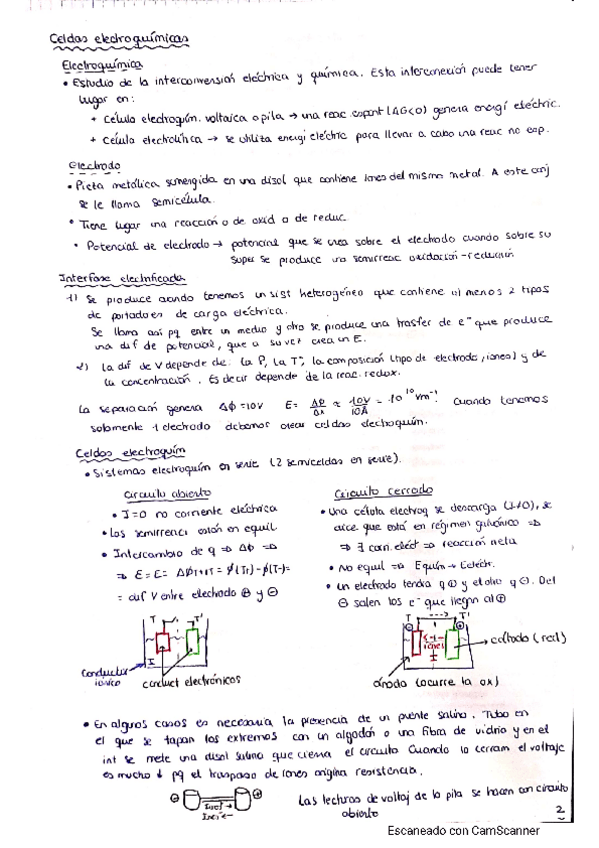 Celdas electroquímicas
Electroquímica
• Estudio de la interconversión eléctrica y química. Esta interconexión puede tener
lugar en:
+ célula electroquím. voltaica o pila → una reac. espont (ΔG<0) genera energí eléctric.
+ célula electrolítica → se utiliza energí eléctric para llevar a cabo una reac no esp.
Electrodo
• Pieza metálica sumergida en una disol que contiene iones del mismo metal. A este conj
se le llama semicélula.
• Tiene lugar una reacción o de oxid o de reduc.
• Potencial de electrodo → potencial que se crea sobre el electrodo cuando sobre su
super se produce una semirreac oxidación-reducción
Interfase electrificada
1) Se produce cuando tenemos un sist heterogéneo que contiene al menos 2 tipos
de portadores de carga eléctrica.
Se llama así pq entre un medio y otro se produce una trasfer de e⁻ que produce
una dif de potencial, que a su vez crea un E.
2) la dif de V depende de: la P, la Tª, la composición (tipo de electrodo, iones) y de
la concentración. Es decir depende de la reac. redox.
La separación genera Δϕ=10V E= Δϕ/Δx ≈ 10V/10Å = 10¹⁰ Vm⁻¹. Cuando tenemos
solamente 1 electrodo debemos crear celdas electroquím.
Celdas electroquím
• Sistemas electroquím en serie (2 semiceldas en serie).
Circuito abierto
• I=0 no corriente eléctrica
• Las semirreacc están en equil
• Intercambio de q ⇒ Δϕ ⇒
⇒ E = Ɛ =
= dif V entre electrodo ⊕ y ⊖
T T'
I
Conductor
iónico
conduct electrónicos
Circuito cerrado
• Una célula electroq se descarga (I≠0), se
dice que está en régimen galvánico ⇒
⇒ ∃ corri. eléct ⇒ reacción neta
• No equil ⇒
• Un electrodo tendrá q⊕ y el otro q⊖. Del
⊖ salen los e⁻ que llegan al ⊕
T T'
iones
I
cátodo (red)
ánodo (ocurre la ox)
• En algunos casos es necesaria la presencia de un puente salino. Tubo en
el que se tapan los extremos con un algodón o una fibra de vidrio y en el
int se mete una disol salina que cierra el circuito. Cuando lo cerram el voltaje
es mucho ↓ pq el traspaso de iones origina resistencia.
⊖ ⊕
Las lecturas de voltaj de la pila se hacen con circuito
abierto
2
Escaneado con CamScanner